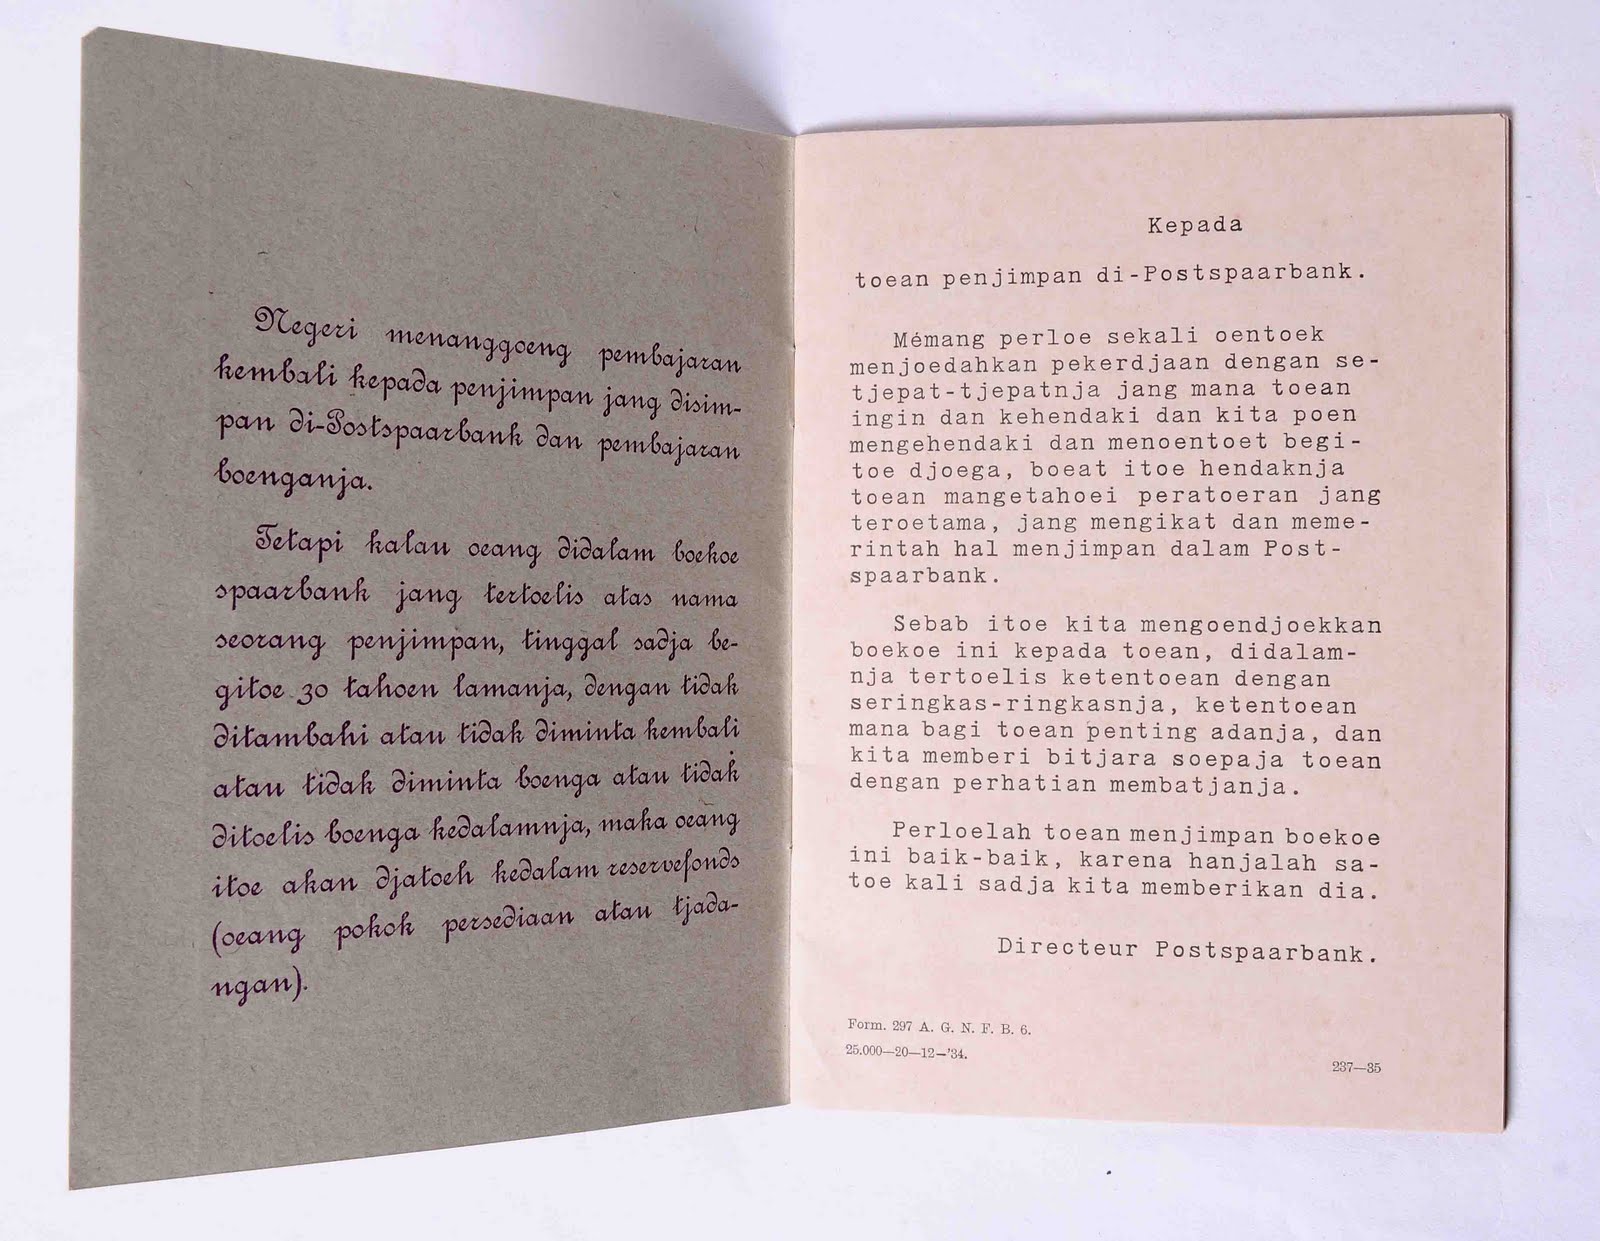 Negeri menanggoeng pembajaran
kembali kepada penjimpan jang disim-
pan di-Postspaarbank dan pembajaran
boenganja.
Tetapi kalau oeang didalam boekoe
spaarbank jang tertoelis atas nama
seorang penjimpan, tinggal sadja be-
gitoe 30 tahoen lamanja, dengan tidak
ditambahi atau tidak diminta kembali
atau tidak diminta boenga atau tidak
ditoelis boenga kedalamnja, maka oeang
itoe akan djatoeh kedalam reservefonds
(oeang pokok persediaan atau tjada-
ngan).
Kepada
toean penjimpan di-Postspaarbank.
Mémang perloe sekali oentoek
menjoedahkan pekerdjaan dengan se-
tjepat-tjepatnja jang mana toean
ingin dan kehendaki dan kita poen
mengehendaki dan menoentoet begi-
toe djoega, boeat itoe hendaknja
toean mangetahoei peratoeran jang
teroetama, jang mengikat dan meme-
rintah hal menjimpan dalam Post-
spaarbank.
Sebab itoe kita mengoendjoekkan
boekoe ini kepada toean, didalam-
nja tertoelis ketentoean dengan
seringkas-ringkasnja, ketentoean
mana bagi toean penting adanja, dan
kita memberi bitjara soepaja toean
dengan perhatian membatjanja.
Perloelah toean menjimpan boekoe
ini baik-baik, karena hanjalah sa-
toe kali sadja kita memberikan dia.
Directeur Postspaarbank.
Form. 297 A. G. N. F. B. 6.
25.000—20—12—'34.
237—35